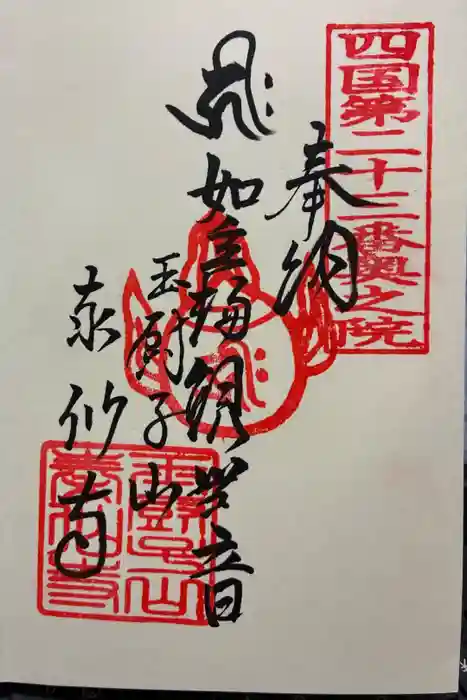 四国第二十三番奥之院
奉納
如意輪観世音
玉厨子山
泰仙寺